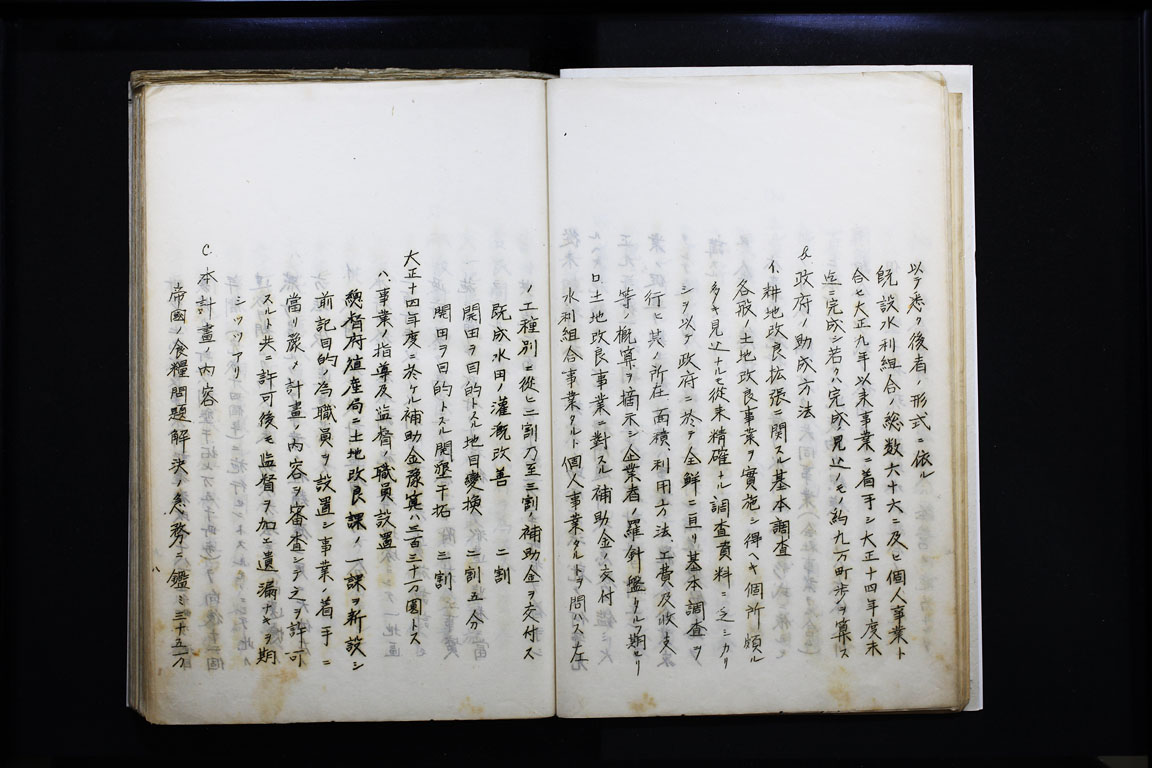 以テ悉ク後者ノ形式ニ依ル
既設水利組合ノ総数六十六ニ及ヒ個人事業ト
合セ大正九年以来事業ニ着手シ大正十四年度末
迄ニ完成シ若クハ完成見込ノモ約九万町歩ヲ算ス
b.政府ノ助成方法
イ.耕地改良拡張ニ関スル基本調査
各般ノ土地改良事業ヲ實施シ得ヘキ個所頗ル
多キ見込ナルモ従来精確ナル調査資料ニ乏シカリ
シヲ以テ政府ニ於テ全鮮ニ亘リ基本調査ヲ
行ヒ其ノ所在面積、利用方法、工費及収支
等ノ概算ヲ摘示シ企業者ノ羅針盤タルヲ期セリ
ロ.土地改良事業ニ對スル補助金ノ交付
水利組合事業タルト個人事業タルトヲ問ハス左
ノ工種別ニ從ヒ二割乃至三割ノ補助金ヲ交付ス
既成水田ノ灌漑改善 二割
開田ヲ目的トスル地目變換 二割五分
開田ヲ目的トスル開墾、干拓 三割
大正十四年度ニ於ケル補助金豫算ハ三百三十万圓トス
ハ.事業ノ指導及監督ノ職員設置
總督府殖産局ニ土地改良課ノ一課ヲ新設シ
前記目的ノ為職員ヲ設置シ事業ノ着手ニ
當リ豫メ計畫ノ内容ヲ審査シテ之ヲ許可
スルト共ニ許可後モ監督ヲ加エ遺漏ナキヲ期
シツツアリ
C.本計畫ノ内容
帝國ノ食糧問題解決ノ急務ニ鑑ミ三十五万